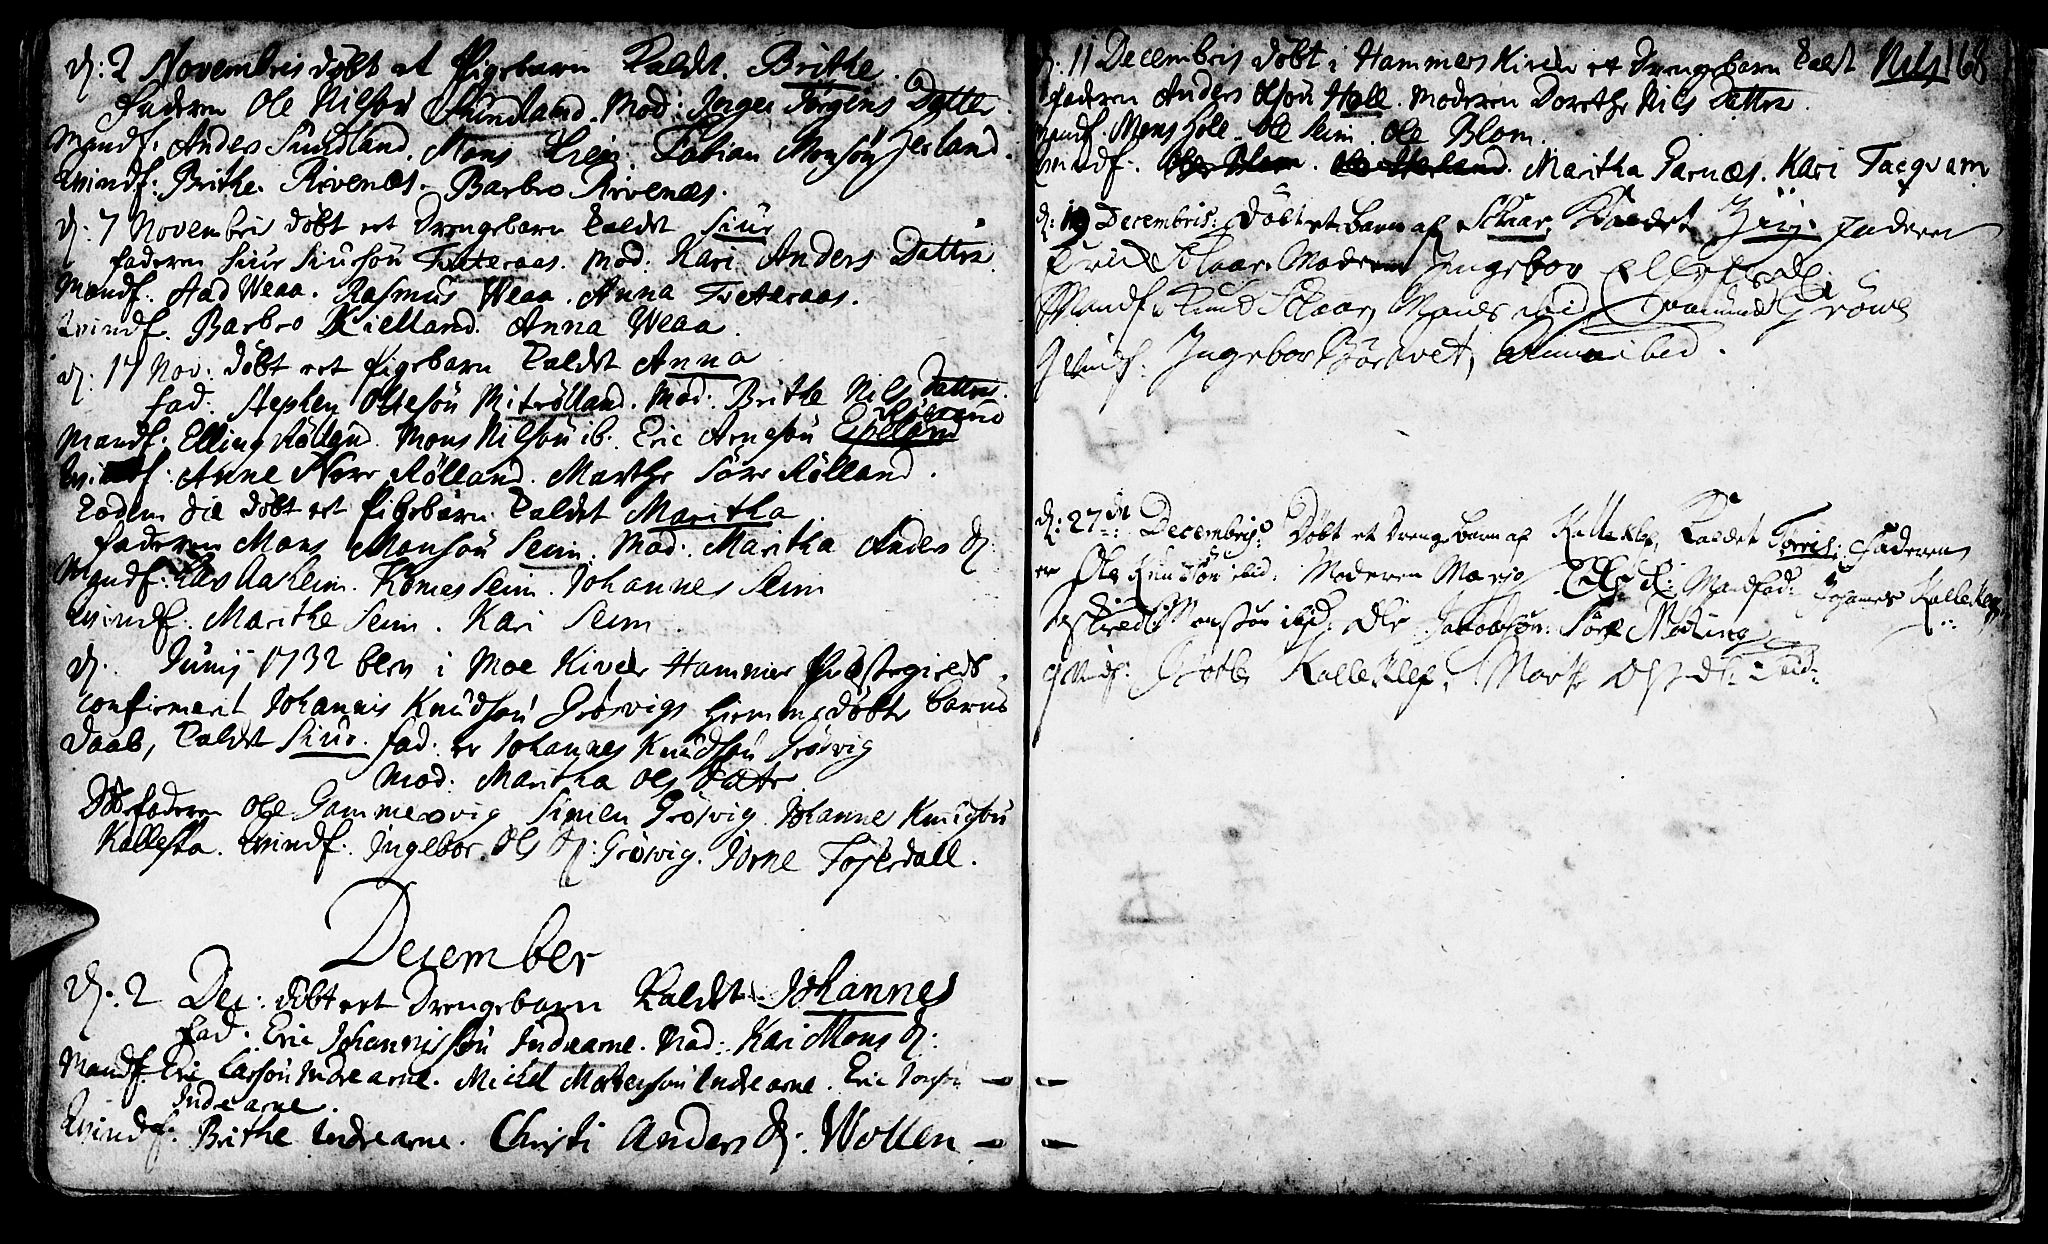 d: 2 Novembris døbt et Pigebarn kaldt Brithe.
Faderen Ole Nilsøn Sundland. Mod: Jorgen Jørgens Datter
Mandf. Anders Sundland. Mons Lien. Fabian Monsøn Herland.
Qvindf: Brithe Rivenæs. Barbro Rivenæs.
d: 7 Novembris døbt et Drengebarn kaldet Siur
Faderen Siur Siursøn Tveteraas. Mod: Kari Anders Datter
Mandf. Aad Weaa. Rasmus Weaa. Anna Tveteraas.
Qvindf. Barbro Kielland. Anna Weaa.
d: 17 Nov: døbt et Pigebarn kaldet Anna
Fad: Stephen Ottesøn Mitrølland. Mod: Brithe Nils Datter.
Rølland
Mandf: Elling Rølland. Mons Nilsøn ib. Eric Arnesøn Espeland
Qvindf: Anne Nere Rølland. Marthe Søre Rølland.
Eodem die døbt et Pigebarn kaldet Maritha
Faderen Mons Monsøn Seim. Mod: Maritha Anders D:
Mandf: Lars Aasheim. Komes Seim. Johannes Seim
Qvindf. Marithe Seim. Kari Seim.
d. Junij 1732 blev i Moe Kircke Hammer Præstegield
confirmerit Johannis Knudsøn Grøsvigs hiemmedøbte barns
daab, kaldet Siur. Fad: er Johannes Knudsøn Grøsvig
Mod: Maritha Ols Datter
Faderen Ole Gammersvig Simen Grøsvig. Johanne Knudsøn
Kallesta. Qvindf. Ingebor Ols D: Grøsvig. Jorne Fosserdall.
December
d: 2 Dec: døbt et Drengebarn kaldet Johannes
Fad: Eric Johannissøn Indrearne. Mod: Kari Mons D:
Mandf. Eric Larsøn Indrearne. Michel Mortensøn Indrearne. Eric Jonsøn
Indrearne.
Qvindf: Brithe Indrearne. Christi Anders D: Wollen
d: 11 Decembris døbt i Hammers Kircke et Drengebarn kaldt Nils 168
Faderen Anders Olsøn Holl. Moderen Dorethe Nils Datter.
Mandf. Mons Hole. Ole Seim. Ole Blom.
Qvindf. Maritha Garnæs. Kari Tacqvam
d: 19 Decembris: døbt et barn af Schaar, kaldet Faderen
Eric Schaar. Moderen Ingebor
Mandf: Knud Schaar, Mons ibid, Grøwe
Qvindf: Ingebor ibid.
d: 27de Decembris: døbt et Drengebarn af Kalleklep, kaldet Torris, Faderen
er Ole Knudsøn ibid. Moderen Marjo Els D: Mandfad: Johannes Kalleklep
Monssøn ibid: Ole Jacobsøn: Søre Mjeling
Qvindf: Kalleklep, Marthe Ols D: ibid: